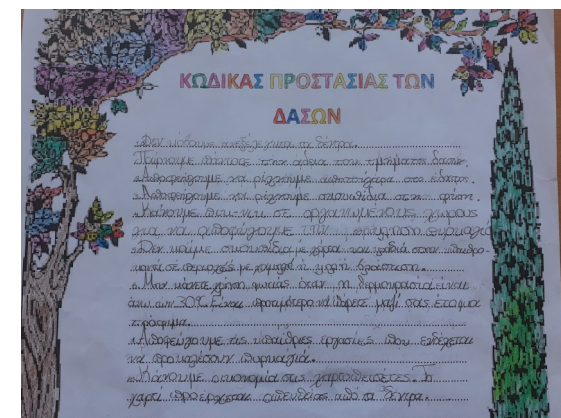 ΚΩΔΙΚΑΣ ΠΡΟΣΤΑΣΙΑΣ ΤΩΝ
ΔΑΣΩΝ
Δεν κόβουμε ανεξέλεγκτα τα δέντρα.
Παίρνουμε πάντοτε την άδεια του τμήματος δασών.
Αποφεύγουμε να ρίχνουμε αποτσίγαρα στο έδαφος.
Αποφεύγουμε να ρίχνουμε σκουπίδια στη φύση.
Κάνουμε πικ-νικ σε οργανωμένους χώρους
για να αποφύγουμε την πρόκληση πυρκαγιά
Δεν καίμε σκουπίδια με χόρτα και κλαδιά στην ύπαιθρο
κοντά σε περιοχές με χαμηλή ή υψηλή βλάστηση.
Μην κάνετε χρήση φωτιάς όταν η θερμοκρασία είναι
άνω των 30°C. Είναι προτιμότερο να πάρετε μαζί σας έτοιμα
τρόφιμα.
Αποφεύγουμε τις υπαίθριες εργασίες που ενδέχεται
να προκαλέσουν πυρκαγιά.
Κάνουμε οικονομία στις χαρτοπετσέτες. Το
χαρτί προέρχεται απευθείας από τα δέντρα.